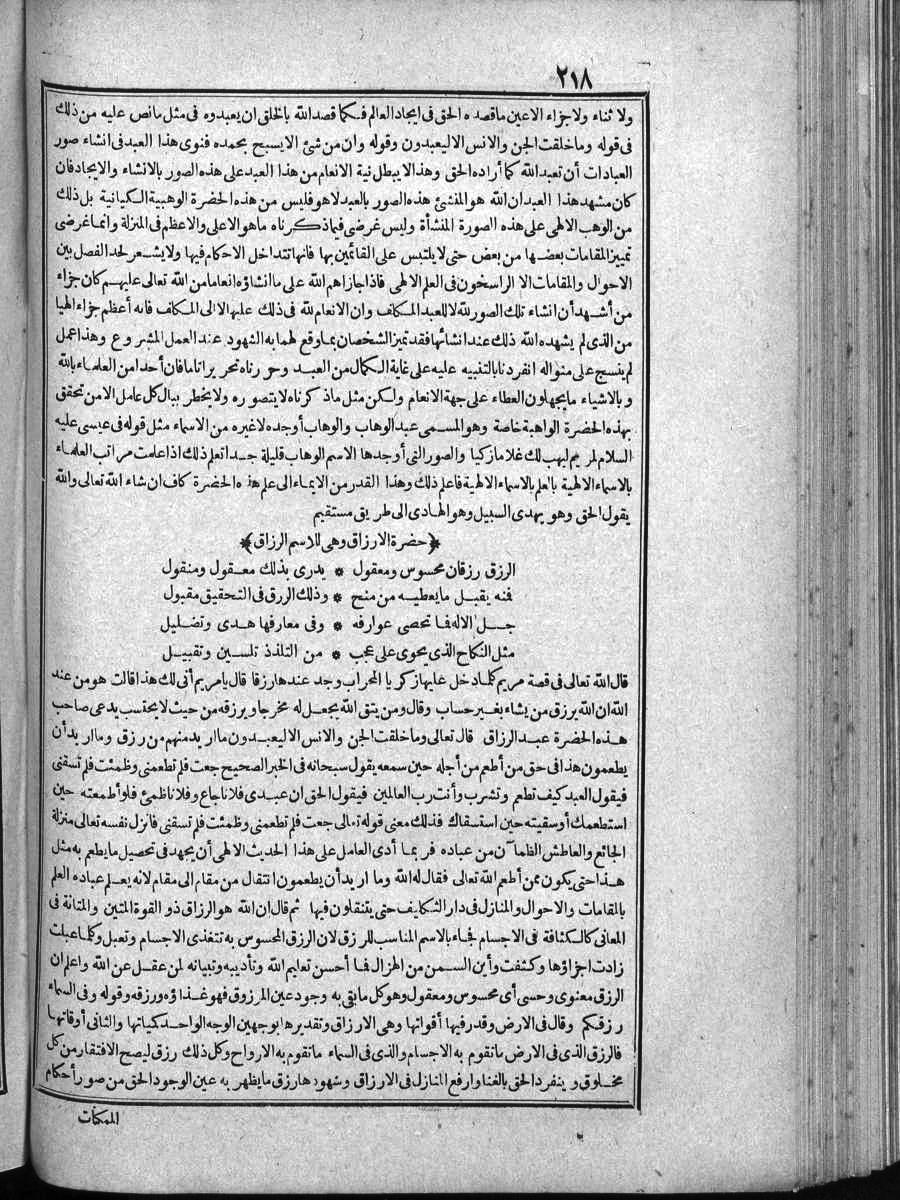 ٢١٨
ولا ثناء ولا جزاء الا عين ماقصده الحق فى ايجاد العالم فكما قصد الله بالخلق ان يعبدوه فى مثل مانص عليه من ذلك
فى قوله وما خلقت الجن والانس الا ليعبدون وقوله وان من شئ الا يسبح بحمده فنوى هذا العبد فى انشاء صور
العبادات أن تعبد الله كما أراده الحق وهذا لا يبطل نية الانعام من هذا العبد على هذه الصور بالانشاء والايجاد فان
كان مشهد هذا العبد ان الله هو المنشئ هذه الصور بالعبد لا هو فليس من هذه الحضرة الوهبية الكيانية بل ذلك
من الوهب الالهى على هذه الصورة المنشأة وليس غرضى فيما ذكرناه ما هو الاعلى والاعظم فى المنزلة وانما غرضى
تمييز المقامات بعضها من بعض حتى لا يلتبس على القائمين بها فانها تتداخل الاحكام فيها ولا يشعر لحد الفصل بين
الاحوال والمقامات الا الراسخون فى العلم الالهى فاذا جازاهم الله على ما انشاؤه انعاما من الله تعالى عليهم كان جزاء
من أشهد أن انشاء تلك الصور لله لا للعبد المكلف وان الانعام لله فى ذلك عليها لا الى المكلف فانه أعظم جزاء الهيا
من الذى لم يشهده الله ذلك عند انشائها فقد تميز الشخصان بما وقع لهما به الشهود عند العمل المشروع وهذا عمل
لم ينسج على منواله انفردنا بالتنبيه عليه على غاية الكمال من العبد وحورناه تحريرا تاما فان أحدا من العلماء بالله
وبالاشياء ما يجهلون العطاء على جهة الانعام ولكن مثل ماذكرناه لا يتصوره ولا يخطر ببال كل عامل الا من تحقق
بهذه الحضرة الواهبة خاصة وهو المسمى عبد الوهاب والوهاب أوجده لا غيره من الاسماء مثل قوله فى عيسى عليه
السلام لمريم ليهب لك غلاما زكيا والصور التى أوجدها الاسم الوهاب قليلة جدا تعلم ذلك اذا علمت مراتب العلماء
بالاسماء الالهية بالعلم بالاسماء الالهية فاعلم ذلك وهذا القدر من الايماء الى علم هذه الحضرة كاف ان شاء الله تعالى والله
يقول الحق وهو يهدى السبيل وهو الهادى الى طريق مستقيم
﴿حضرة الارزاق وهى للاسم الرزاق﴾
الرزق رزقان محسوس ومعقول * يدرى بذلك معقول ومنقول
فمنه يقبل ما يعطيه من منح * وذلك الرزق فى التحقيق مقبول
جل الاله فما تحصى عوارفه * وفى معارفها هدى وتضليل
مثل النكاح الذى يحوى على عجب * من التلذذ تلسين وتقبيل
قال الله تعالى فى قصة مريم كلما دخل عليها زكريا المحراب وجد عندها رزقا قال يامريم أنى لك هذا قالت هو من عند
الله ان الله يرزق من يشاء بغير حساب وقال ومن يتق الله يجعل له مخرجا ويرزقه من حيث لا يحتسب يدعى صاحب
هذه الحضرة عبد الرزاق قال تعالى وما خلقت الجن والانس الا ليعبدون ما أريد منهم من رزق وما أريد أن
يطعمون هذا فى حق من أطعم من أجله حين سمعه يقول سبحانه فى الخبر الصحيح جعت فلم تطعمنى وظمئت فلم تسقنى
فيقول العبد كيف تطعم وتشرب وأنت رب العالمين فيقول الحق ان عبدى فلانا جاع وفلانا ظمئ فلو أطعمته حين
استطعمك أوسقيته حين استسقاك فذلك معنى قوله تعالى جعت فلم تطعمنى وظمئت فلم تسقنى فانزل نفسه تعالى منزلة
الجائع والعاطش الظمآن من عباده فربما أدى العامل على هذا الحديث الالهى أن يجهد فى تحصيل ما يطعم به مثل
هذا حتى يكون ممن أطعم الله تعالى فقال له الله وما اريد أن يطعمون انتقال من مقام الى مقام لانه يعلم عباده العلم
بالمقامات والاحوال والمنازل فى دار التكليف حتى يتنقلون فيها ثم قال ان الله هو الرزاق ذو القوة المتين والمتانة فى
المعانى كالكثافة فى الاجسام فجاء بالاسم المناسب للرزق لان الرزق المحسوس به تتغذى الاجسام وتعبل وكلما عبلت
زادت اجزاؤها وكثفت وأين السمن من الهزال فما أحسن تعليم الله وتأديبه وتبيانه لمن عقل عن الله واعلم ان
الرزق معنوى وحسى أى محسوس ومعقول وهو كل ما بقى به وجود عين المرزوق فهو غذاؤه ورزقه وقوله وفى السماء
رزقكم وقال فى الارض وقدر فيها أقواتها وهى الارزاق وتقديرها بوجهين الوجه الواحد كمياتها والثانى أوقاتها
فالرزق الذى فى الارض ما تقوم به الاجسام والذى فى السماء ما تقوم به الارواح وكل ذلك رزق ليصح الافتقار من كل
مخلوق وينفرد الحق بالغنا وارفع المنازل فى الارزاق وشهودها رزق ما يظهر به عين الوجود الحق من صور أحكام
الممكنات